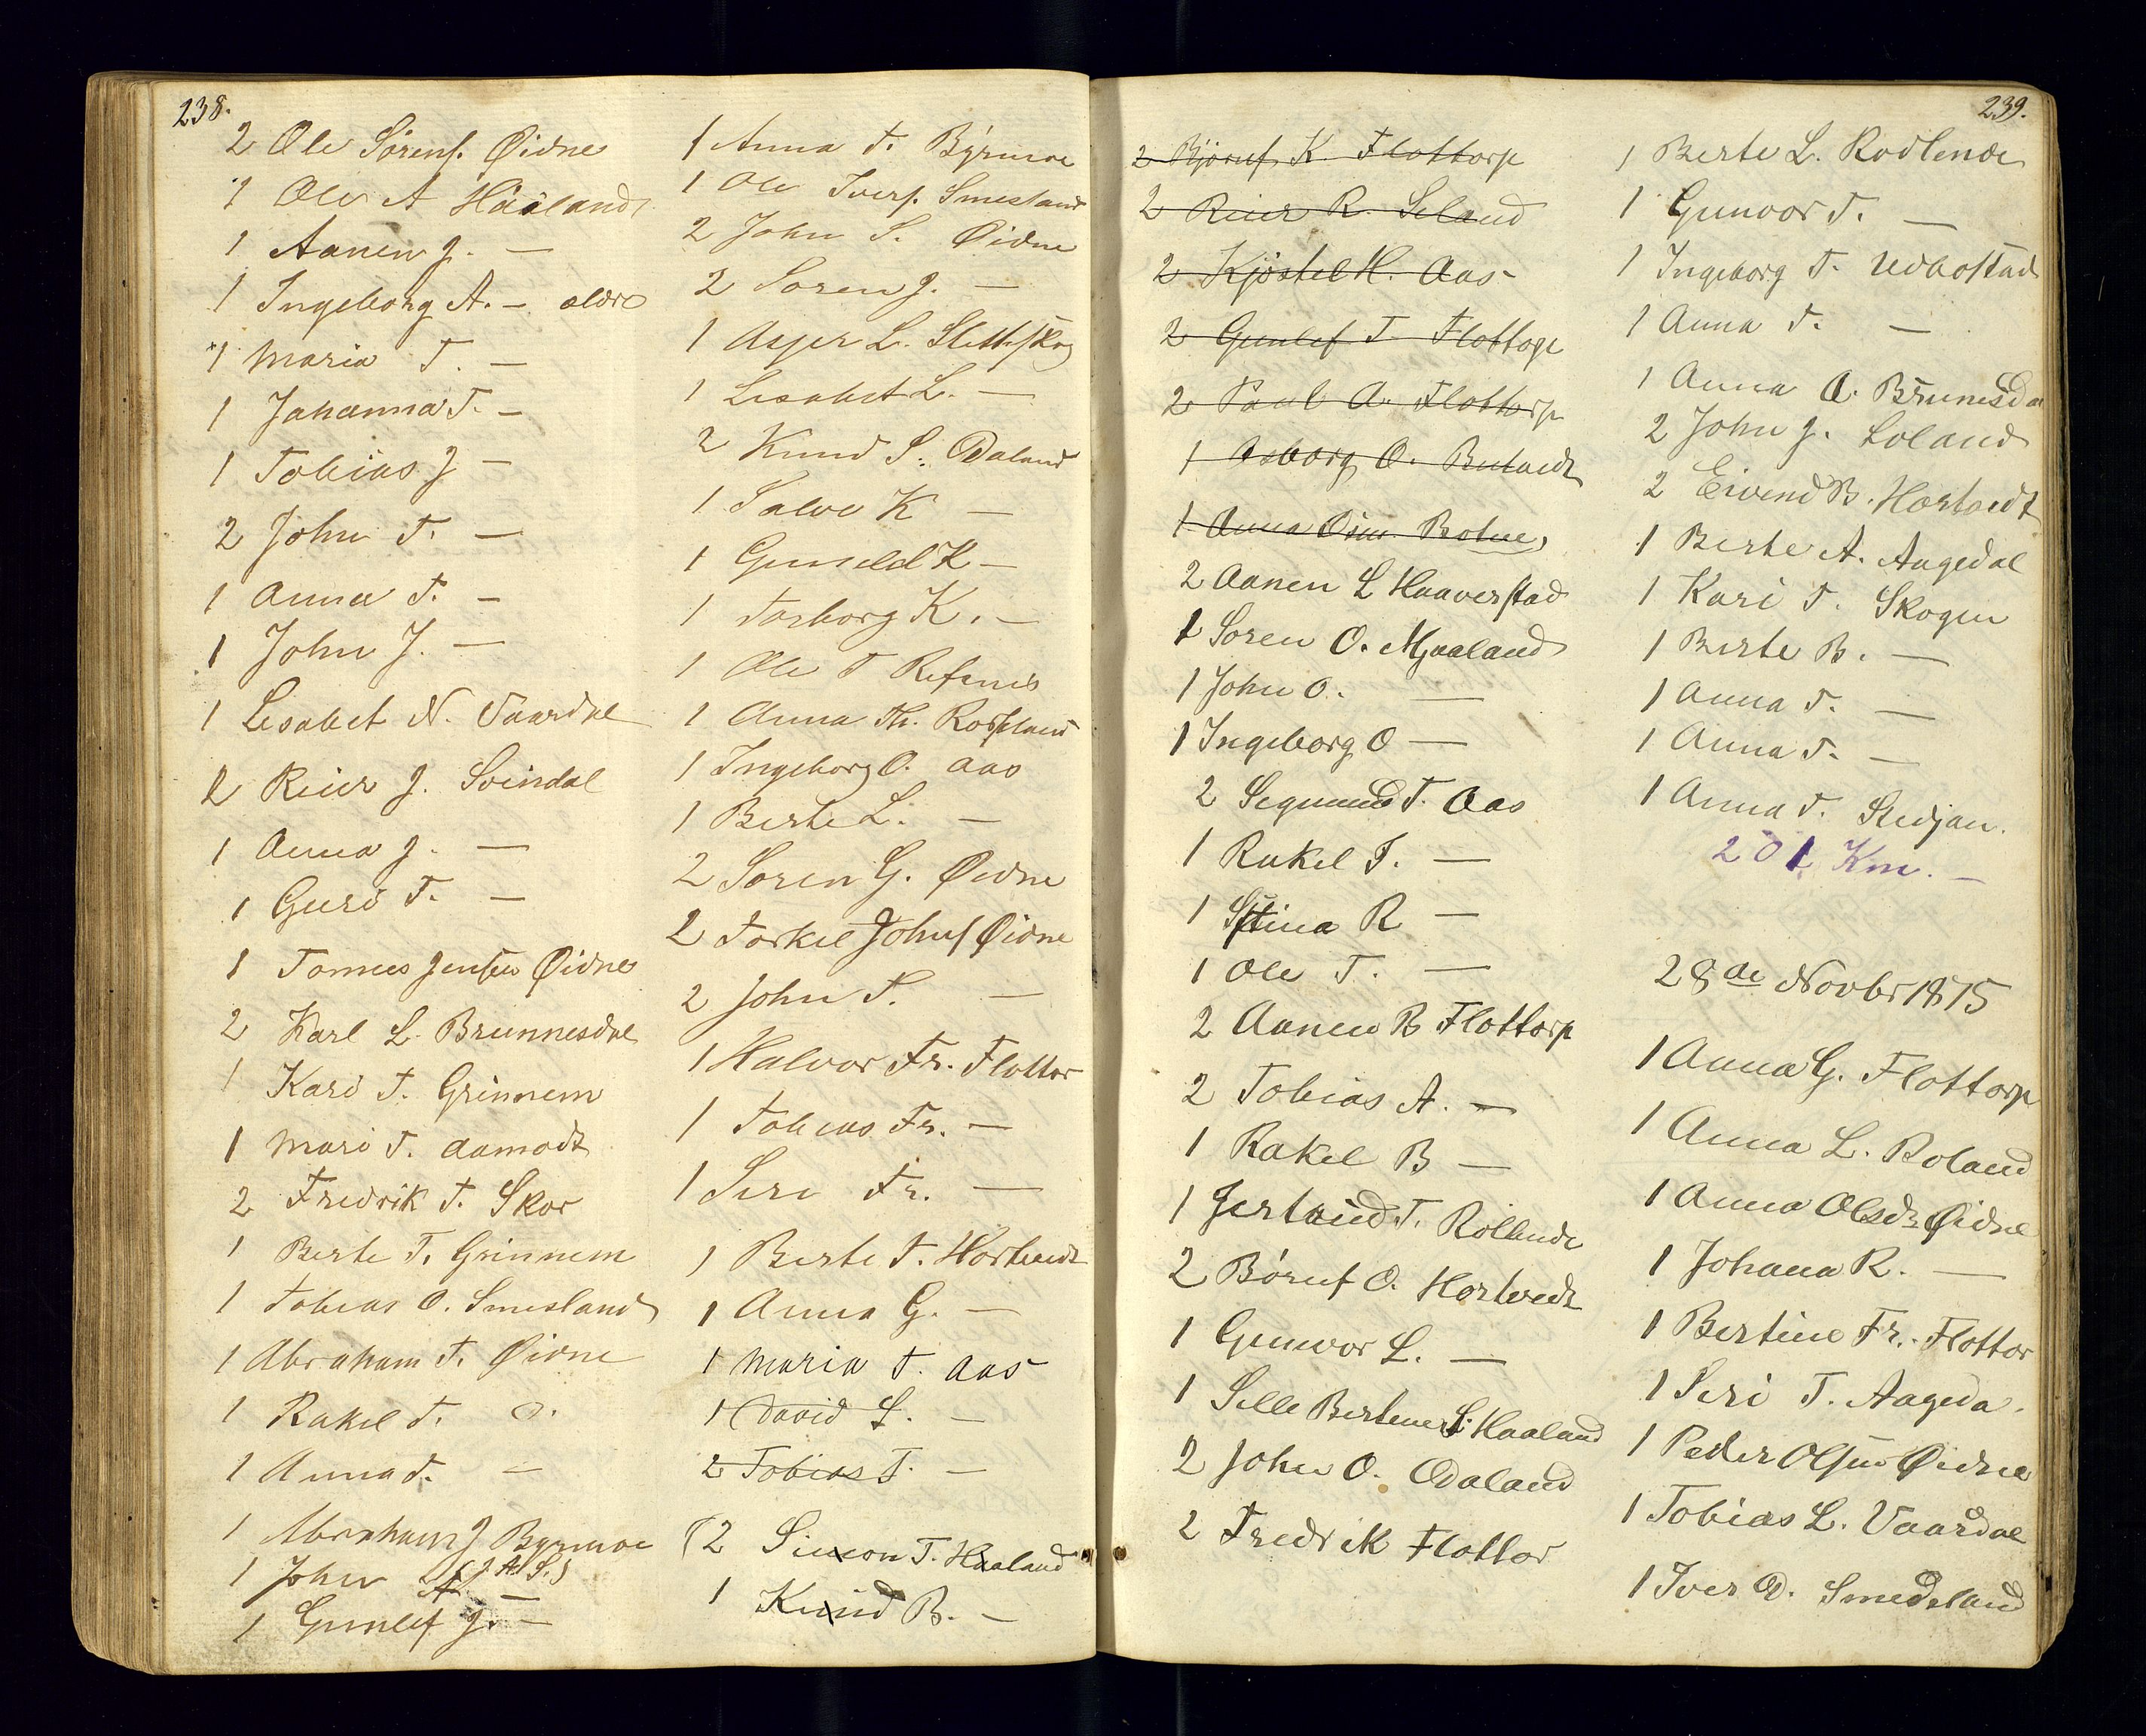 238.
2 Ole Sörens. Øidne
1 Ole A Hååland
1 Aanen J. —
1 Ingeborg A. — ældre
1 Maria T. —
1 Johanna T. —
1 Tobias J —
2 John T. —
1 Anna T. —
1 John J. —
1 Lisabet N. Vaardal
2 Reier J. Svindal
1 Anna J. —
1 Guri T. —
1 Tomees Jensen Øidne
2 Karl L. Brunnesdal
1 Kari T. Grinnem
1 Mari T. Aamodt
2 Fredrik T. Skor
1 Berte T. Grinnem
1 Tobias O. Smesland
1 Abraham T. Øidne
1 Rakel T. O.
1 Anna T. —
1 Abraham J Byrmoe
1 John A. —
1 Gunlef J. —
1 Anna T. Byrmoe
1 Ole Ivers. Smesland
2 John S. Øidne
2 Soren J. —
1 Asjer L. Sletteskog
1 Lisabet L. —
2 Knud S. Ødaland
1 Salve K —
1 Guneld K —
1 Torborg K. —
1 Ole T Refsnes
1 Anna Th. Rossland
1 Ingeborg O. Aas
1 Berte L. —
2 Soren G. Øidne
2 Torkel Johns Øidne
2 John T. —
1 Halvor Fr. Flottor
1 Tobias Fr. —
1 Siri Fr. —
1 Berte T. Hortvedt
1 Anna G. —
1 Maria T. Aas
1 David L. —
2 Tobias T. —
(2 Simon T. Haaland
1 Knud B. —
239.
2 Björnf. K. Flottorp
2 Reier R. Seland
2 Kjöstel H. Aas
2 Gunlef T. Flottorp
2 Paul A. Flottorp
1 Asborg O.
1 Anna
2 Aanen L Haaverstad
1 Soren O. Mjaaland
1 John O. —
1 Ingeborg O —
2 Segmund T. Aas
1 Rakel T. —
1 Stina R —
1 Ole T. —
2 Aanen B Flottorp
2 Tobias A. —
1 Rakel B —
1 Jertrud T. Röllende
2 Böruf O. Hortvedt
1 Gunvor L. —
1 Sille Bertines S: Haaland
2 John O. Ødaland
2 Fredrik Flottor
1 Berte L. Rodlende
1 Gunvor T. —
1 Ingeborg T. Udbostad
1 Anna T. —
1 Anna A. Brunesdal
2 John J. Loland
2 Eivend B. Hortvedt
1 Berte A. Aagedal
1 Kari T. Skogen
1 Berte B. —
1 Anna T. —
1 Anna T. —
1 Anna T. Stedjan.
201 Km. —
28de Novbr 1875
1 Anna G. Flottorp
1 Anna L. Roland
1 Anna Olsdr Øidne
1 Johana R. —
1 Bertine Fr. Flottor
1 Siri T. Aageda.
1 Peder Olsen Øidne
1 Tobias L. Vaardal
1 Iver O. Smedsland